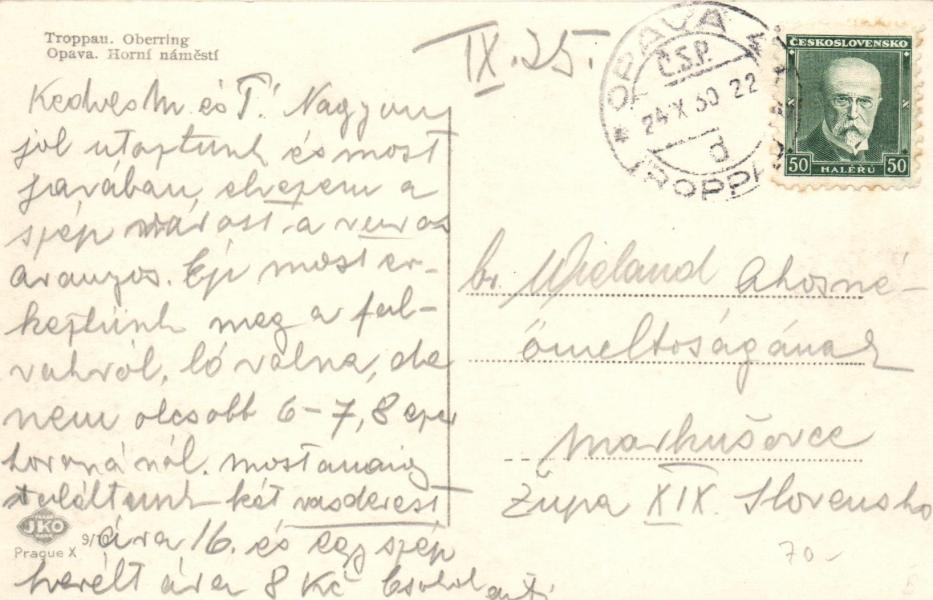 Troppau. Oberring
Opava. Horní náměstí
IX. 25.
OPAVA
Č.S.P.
24 X 30 22
d
TROPPAU
ČESKOSLOVENSKO
50 HALÉŘŮ 50
Kedves M és T! Nagyon
jól utaztunk és most
javában élvezem a
szép várost, a város
aranyos. Ép most ér-
keztünk meg a fal-
vakról, ló volna, de
nem olcsóbb 6–7, 8 ezer
koronánál. mostanáig
találtunk két vasderest
ára 16. és egy szép
herélt ára 8 Kč Csókol
br. Wieland Ákosné-
őméltóságának
Markušovce
Župa XIX. Slovensko
JKO
Prague X
70-